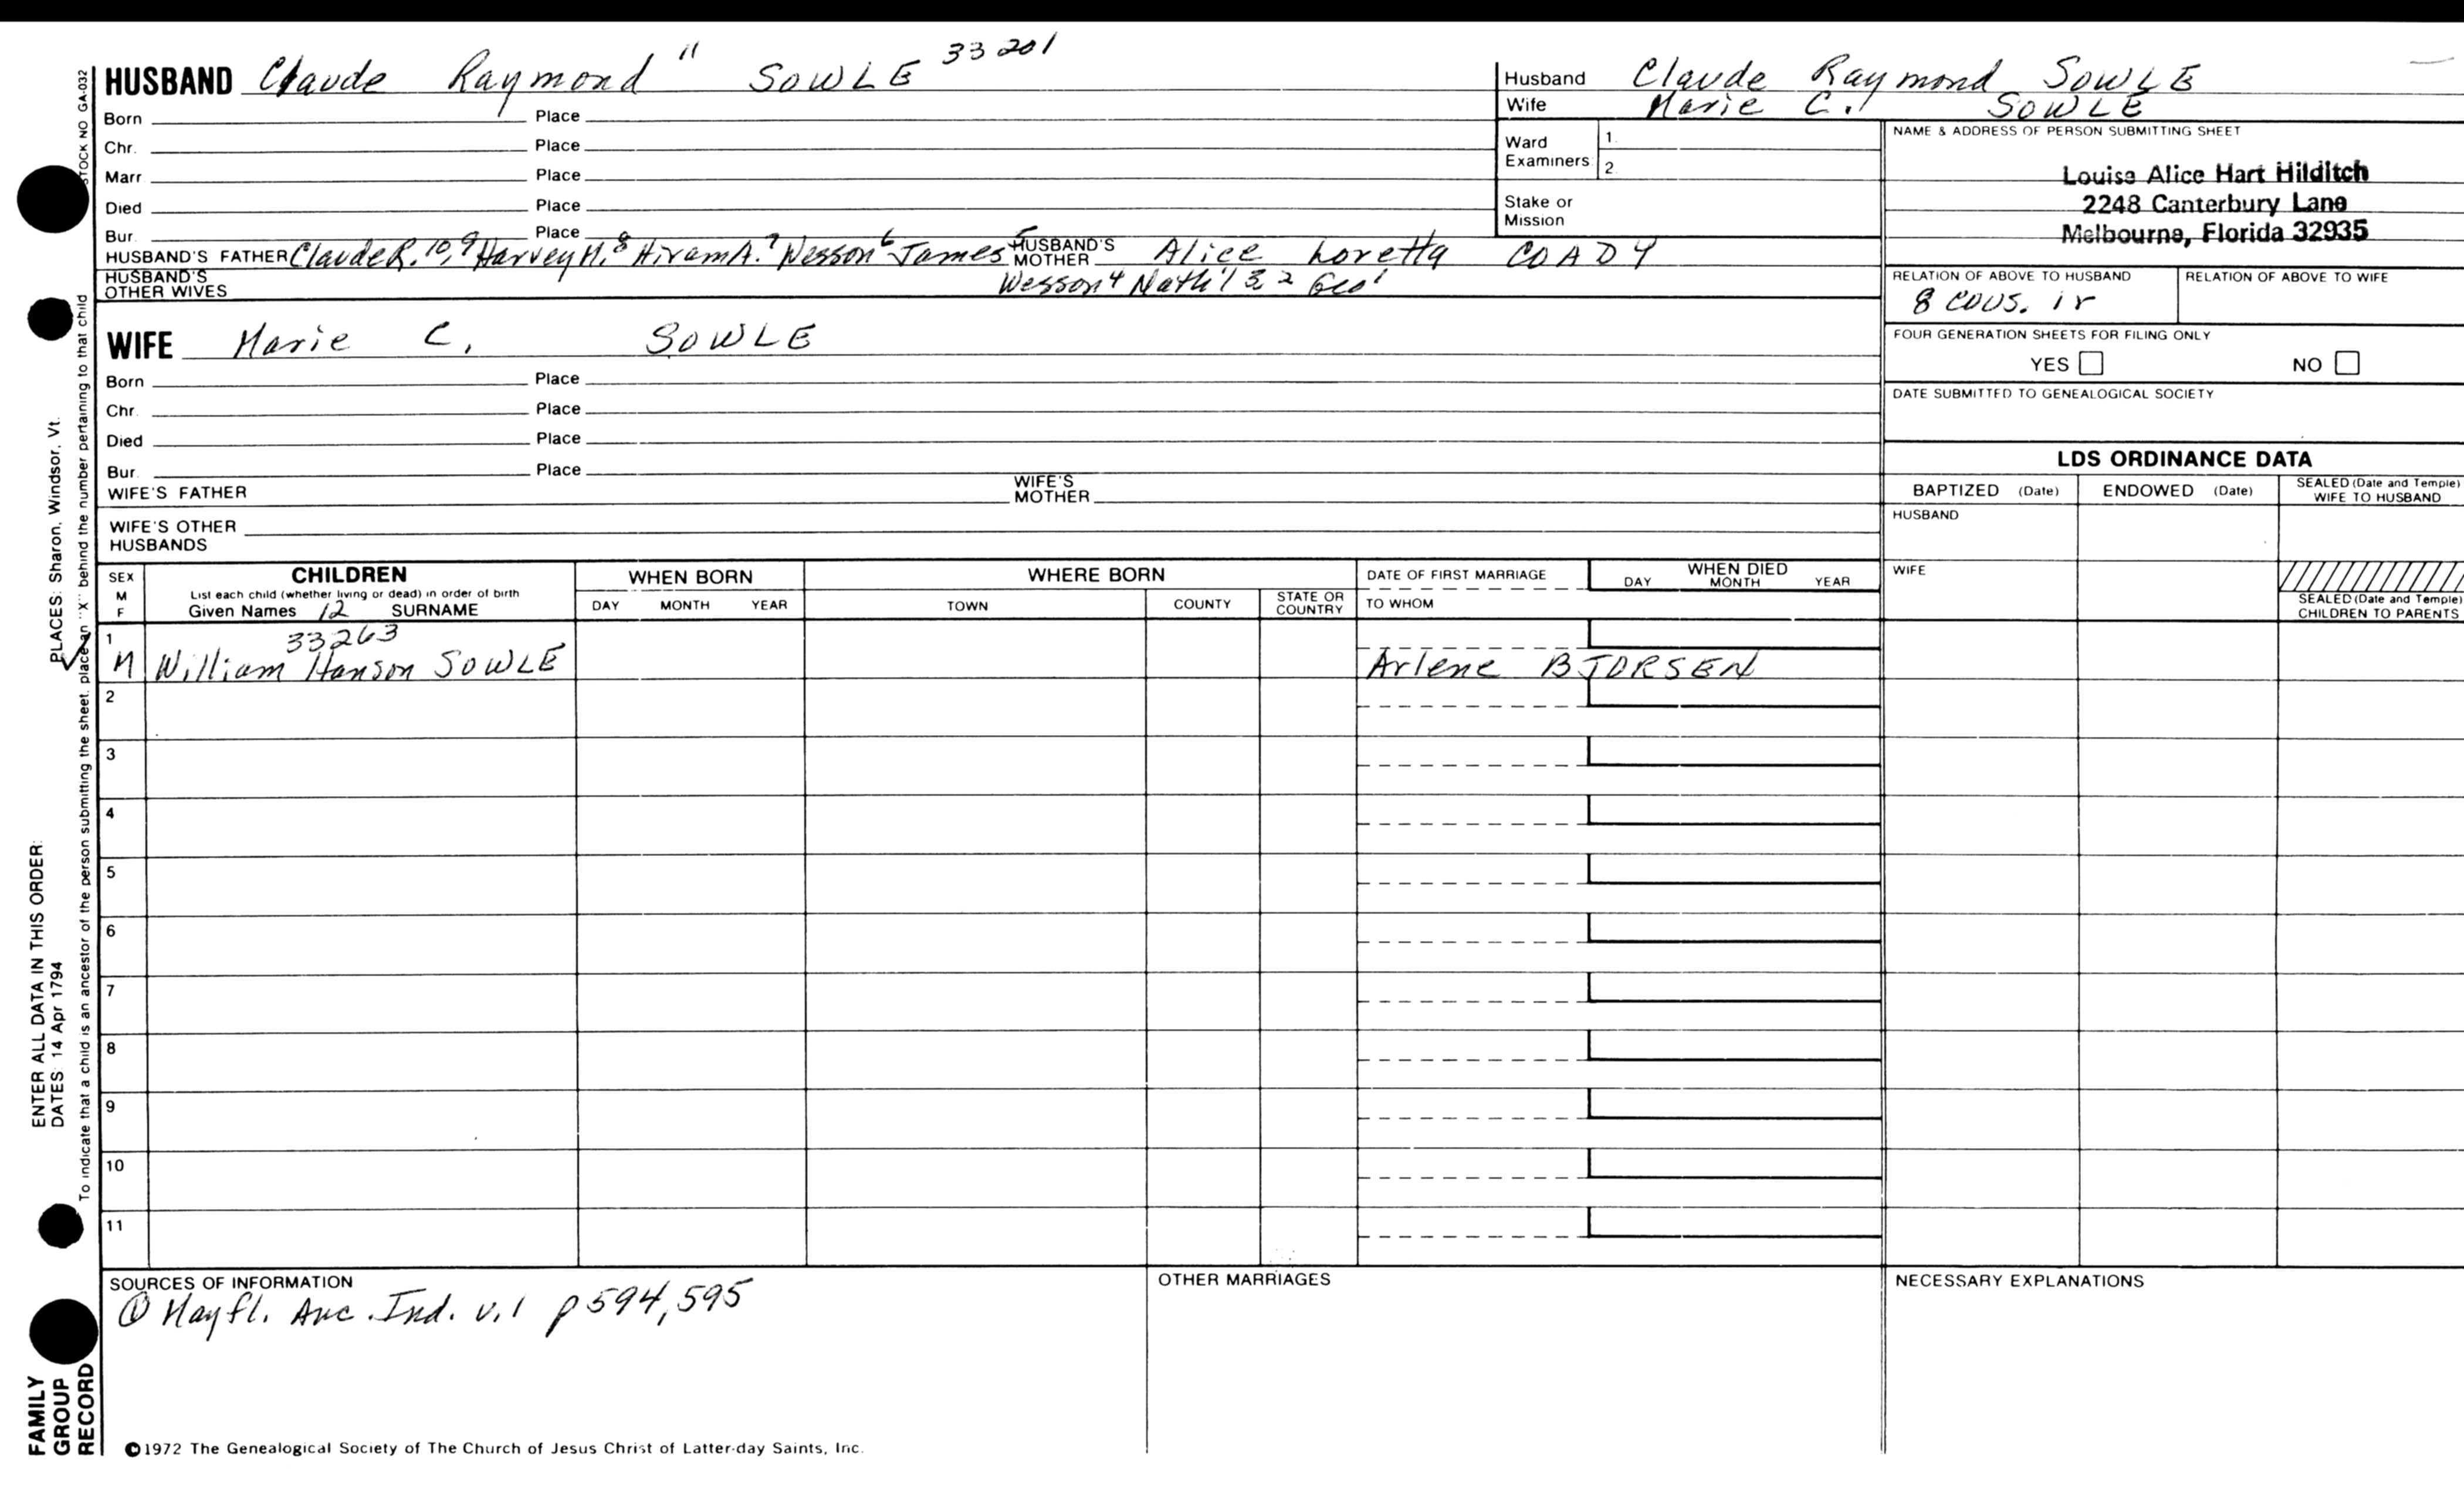 HUSBAND Claude Raymond 11 SOWLE 33201
Born Place
Chr. Place
Marr Place
Died Place
Bur. Place
HUSBAND'S FATHER Claude R. 10, 9 Harvey M. 8 Hiram A. 7 Wesson 6 James 5 HUSBAND'S MOTHER Alice Loretta COADY
HUSBAND'S OTHER WIVES Wesson 4 Nath'l 3 2 Geo 1
Husband Claude Raymond SOWLE
Wife Marie C. SOWLE
Ward Examiners 1. 2.
Stake or Mission
NAME & ADDRESS OF PERSON SUBMITTING SHEET
Louise Alice Hart Hilditch
2248 Canterbury Lane
Melbourne, Florida 32935
RELATION OF ABOVE TO HUSBAND RELATION OF ABOVE TO WIFE
8 cous. 1r
FOUR GENERATION SHEETS FOR FILING ONLY
YES NO
DATE SUBMITTED TO GENEALOGICAL SOCIETY
WIFE Marie C. SOWLE
Born Place
Chr. Place
Died Place
Bur. Place
WIFE'S FATHER WIFE'S MOTHER
WIFE'S OTHER HUSBANDS
LDS ORDINANCE DATA
BAPTIZED (Date) ENDOWED (Date) SEALED (Date and Temple) WIFE TO HUSBAND
HUSBAND
WIFE
SEALED (Date and Temple) CHILDREN TO PARENTS
SEX M F
CHILDREN
List each child (whether living or dead) in order of birth
Given Names 12 SURNAME
WHEN BORN
DAY MONTH YEAR
WHERE BORN
TOWN COUNTY STATE OR COUNTRY
DATE OF FIRST MARRIAGE
TO WHOM
WHEN DIED
DAY MONTH YEAR
1 33263
M William Hanson SOWLE Arlene BJORSEN
2
3
4
5
6
7
8
9
10
11
SOURCES OF INFORMATION
① Mayfl. Anc. Ind. v.1 p594,595
OTHER MARRIAGES
NECESSARY EXPLANATIONS
©1972 The Genealogical Society of The Church of Jesus Christ of Latter-day Saints, Inc.
STOCK NO GA-032
To indicate that a child is an ancestor of the person submitting the sheet, place an "X" behind the number pertaining to that child
PLACES: Sharon, Windsor, Vt.
ENTER ALL DATA IN THIS ORDER:
DATES: 14 Apr 1794
FAMILY
GROUP
RECORD